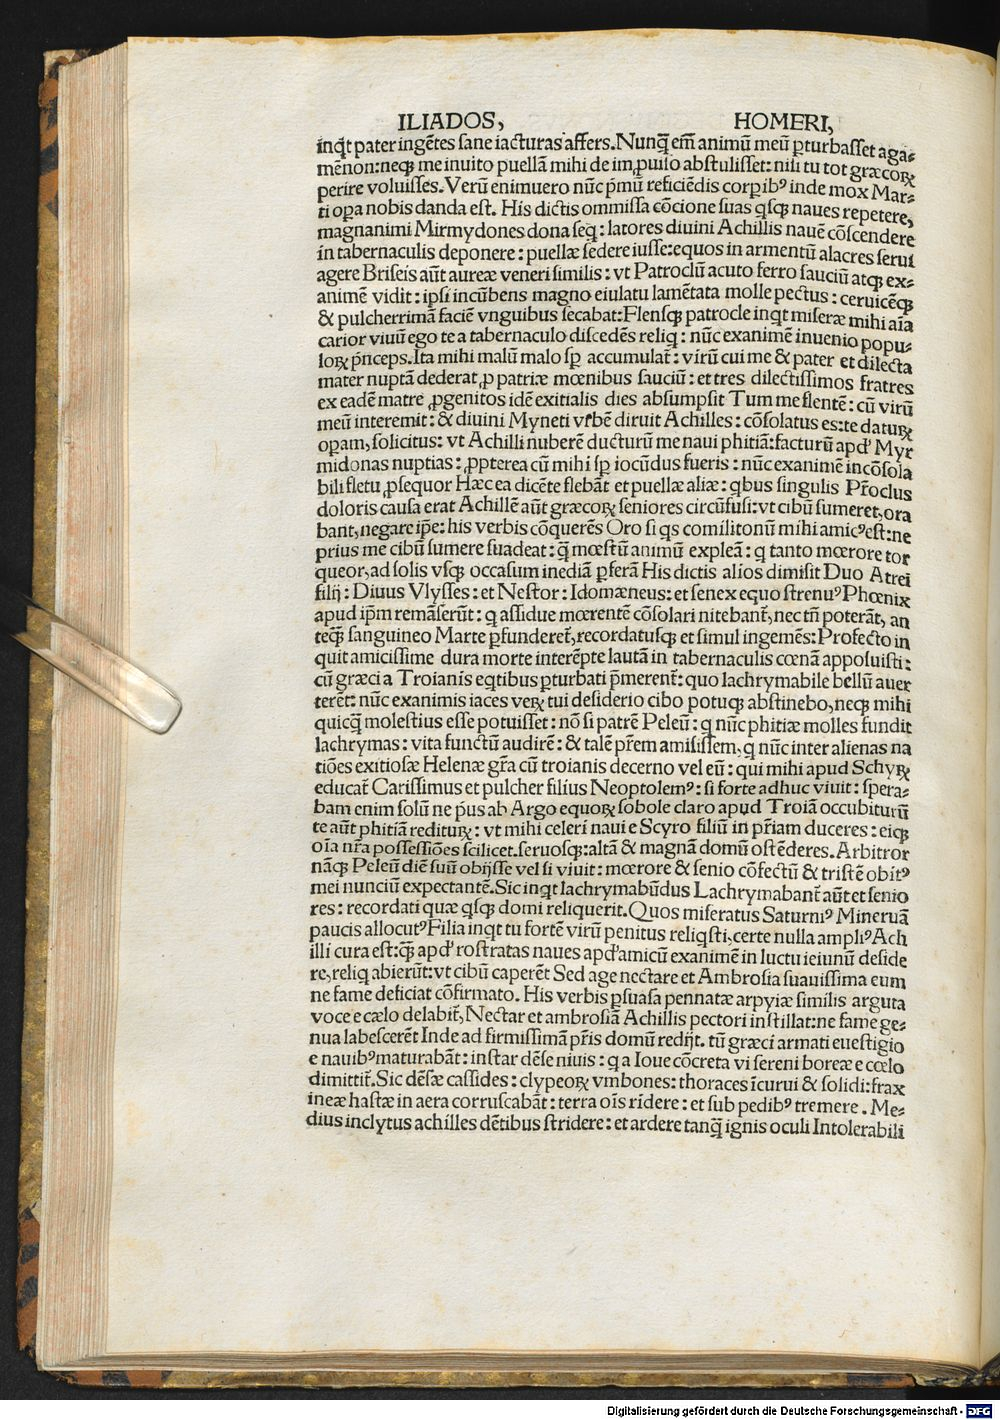 ILIADOS, HOMERI,
inq̃t pater ingẽtes ſane iacturas affers. Nunq̃ em̃ animũ meũ ꝑturbaſſet aga⸗
mẽnon: neqꝫ me inuito puellã mihi de im ꝓuiſo abſtuliſſet: niſi tu tot græcoꝝ
perire voluiſſes. Verũ enimuero nũc p̃mũ reficiẽdis corꝑibꝰ inde mox Mar⸗
ti oꝑa nobis danda eſt. His dictis ommiſſa cõcione ſuas qſqꝫ naues repetere,
magnanimi Mirmydones dona ſeq̃: latores diuini Achillis nauẽ cõſcendere
in tabernaculis deponere: puellæ ſedere iuſſe: equos in armentũ alacres ſerui
agere Briſeis aũt aureæ veneri ſimilis: vt Patroclũ acuto ferro ſauciũ atqꝫ ex⸗
animẽ vidit: ipſi incũbens magno eiulatu lamẽtata molle pectus: ceruicẽqꝫ
& pulcherrimã faciẽ vnguibus ſecabat: Flenſqꝫ patrocle inqt miſeræ mihi aĩa
carior viuũ ego te a tabernaculo diſcedẽs reliq̃: nũc exanimẽ inuenio popu⸗
loꝝ p̃nceps. Ita mihi malũ malo ſꝑ accumulat̃: virũ cui me & pater et dilecta
mater nuptã dederat, ꝓ patriæ mœnibus ſauciũ: et tres dilectiſſimos fratres
ex eadẽ matre ꝓgenitos idẽ exitialis dies abſumpſit Tum me flentẽ: cũ virũ
meũ interemit: & diuini Myneti vrbẽ diruit Achilles: cõſolatus es: te daturꝝ
opam, ſolicitus: vt Achilli nuberẽ ducturũ me naui phitiã: facturũ apd̓ Myr
midonas nuptias: ꝓpterea cũ mihi ſꝑ iocũdus fueris: nũc exanimẽ incõſola
bili fletu ꝓſequor Hæc ea dicẽte flebãt et puellæ aliæ: qbus ſingulis Pr̃oclus
doloris cauſa erat Achillẽ aũt græcoꝝ ſeniores circũfuſi: vt cibũ ſumeret, ora
bant, negare ip̃e: his verbis cõquerẽs Oro ſi qs comilitonũ mihi amicꝰ eſt: ne
prius me cibũ ſumere ſuadeat: q̃ mœſtũ animũ expleã: q tanto mœrore tor
queor, ad ſolis vſqꝫ occaſum inediã ꝑferã His dictis alios dimiſit Duo Atrei
filij: Diuus Vlyſſes: et Neſtor: Idomæneus: et ſenex equo ſtrenuꝰ Phœnix
apud ip̃m remãſerũt: q aſſidue mœrentẽ cõſolari nitebant̃, nec tñ poterãt, an
teq̃ſanguineo Marte ꝑfunderet̃, recordatuſqꝫ et ſimul ingemẽs: Profecto in
quit amiciſſime dura morte interẽpte lautã in tabernaculis cœnã appoſuiſti:
cũ græci a Troianis eqtibus ꝑturbati p̃merent̃: quo lachrymabile bellũ auer
terẽt: nũc exanimis iaces veꝝ tui deſiderio cibo potuqꝫ abſtinebo, neqꝫ mihi
quicq̃ moleſtius eſſe potuiſſet: nõ ſi patrẽ Peleũ: q nũc phitiæ molles fundit
lachrymas: vita functũ audirẽ: & talẽ pr̃em amiſiſſem, q nũc inter alienas na
tiões exitioſæ Helenæ gr̃a cũ troianis decerno vel eũ: qui mihi apud Schyꝝ
educat̃ Cariſſimus et pulcher filius Neoptolemꝰ: ſi forte adhuc viuit: ſpera⸗
bam enim ſolũ ne p̃us ab Argo equoꝝ ſobole claro apud Troiã occubiturũ
te aũt phitiã rediturꝝ: vt mihi celeri naui e Scyro filiũ in pr̃iam duceres: eiqꝫ
oĩa nr̃a poſſeſſiões ſcilicet. ſeruoſqꝫ: altã & magnã domũ oſtẽderes. Arbitror
nãqꝫ Peleũ diẽ ſuũ obijſſe vel ſi viuit: mœrore & ſenio cõfectũ & triſtẽ obitꝰ
mei nunciũ expectantẽ. Sic inqt lachrymabũdus Lachrymabant̃ aũt et ſenio
res: recordati quæ qſqꝫ domi reliquerit. Quos miſeratus Saturniꝰ Mineruã
paucis allocutꝰ Filia inqt tu fortẽ virũ penitus reliqſti, certe nulla ampliꝰ Ach
illi cura eſt: q̃ apd̓ roſtratas naues apd̓ amicũ exanimẽ in luctu ieiunũ deſide
re, reliq abierũt: vt cibũ caperẽt Sed age nectare et Ambroſia ſuauiſſima eum
ne fame deficiat cõfirmato. His verbis ꝑſuaſa pennatæ arpyiæ ſimilis arguta
voce e cælo delabit̃, Nectar et ambroſiã Achillis pectori inſtillat: ne fame ge⸗
nua labeſcerẽt Inde ad firmiſſimã pr̃is domũ redijt. tũ græci armati eueſtigio
e nauibꝰ maturabãt: inſtar dẽſe niuis: q a Ioue cõcreta vi ſereni boreæ e cœlo
dimittit̃. Sic dẽſæ caſſides: clypeoꝝ vmbones: thoraces ĩcurui & ſolidi: frax
ineæ haſtæ in aera corruſcabãt: terra oĩs rĩdere: et ſub pedibꝰ tremere. Me⸗
dius inclytus achilles dẽtibus ſtridere: et ardere tanq̃ ignis oculi Intolerabili
Digitalisierung gefördert durch die Deutsche Forschungsgemeinschaft - DFG